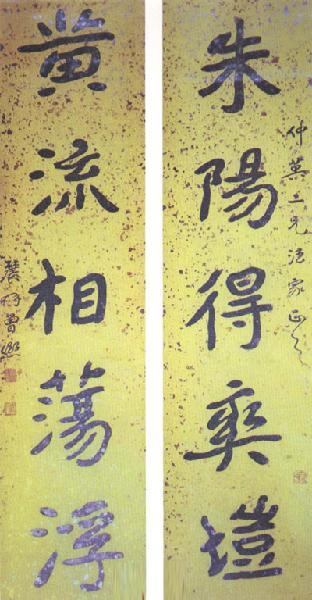 朱陽得爽塏
仲英二兄法家正之
黄流相蕩浮
農髯曾熙